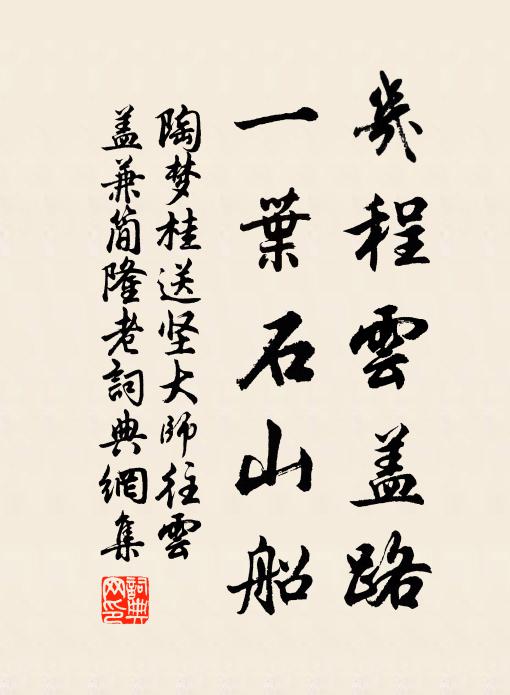 幾程雲盖路
一葉石山船
陶梦桂送坚大师往雲
盖兼简隆老詞典網集
詞典網印